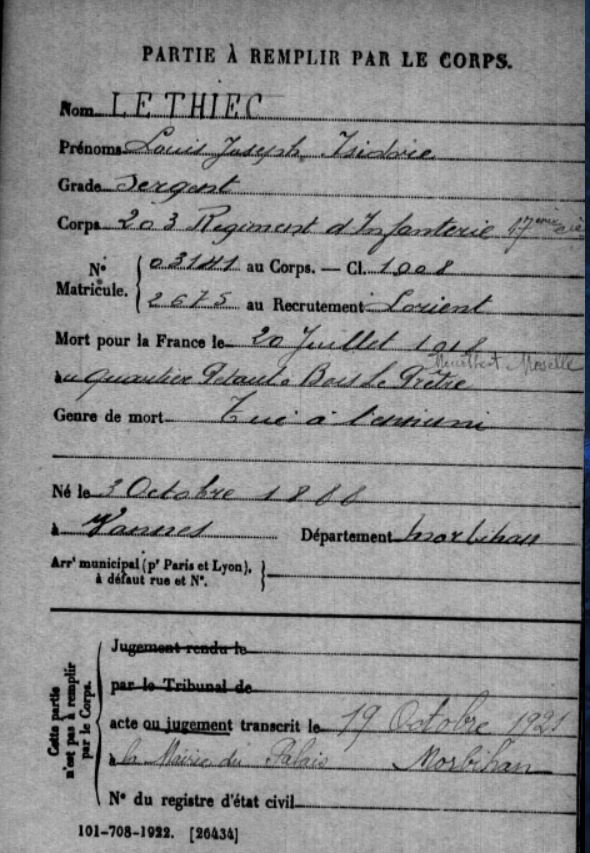 PARTIE À REMPLIR PAR LE CORPS.
Nom LE THIEC
Prénoms Louis Joseph Isidore
Grade Sergent
Corps 203 Regiment d'Infanterie 17eme Cie
N° Matricule. 03141 au Corps. — Cl. 1908
2675 au Recrutement Lorient
Mort pour la France le 20 Juillet 1918
Meurthe et Moselle
au quartier Bois Le Prêtre
Genre de mort Tué à l'ennemi
Né le 3 Octobre 1888
à Vannes Département Morbihan
Arrt municipal (pr Paris et Lyon),
à défaut rue et N°.
Cette partie n'est pas à remplir par le Corps.
Jugement rendu le
par le Tribunal de
acte ou jugement transcrit le 19 Octobre 1921
à la Mairie du Palais Morbihan
N° du registre d'état civil
101-708-1922. [26434]